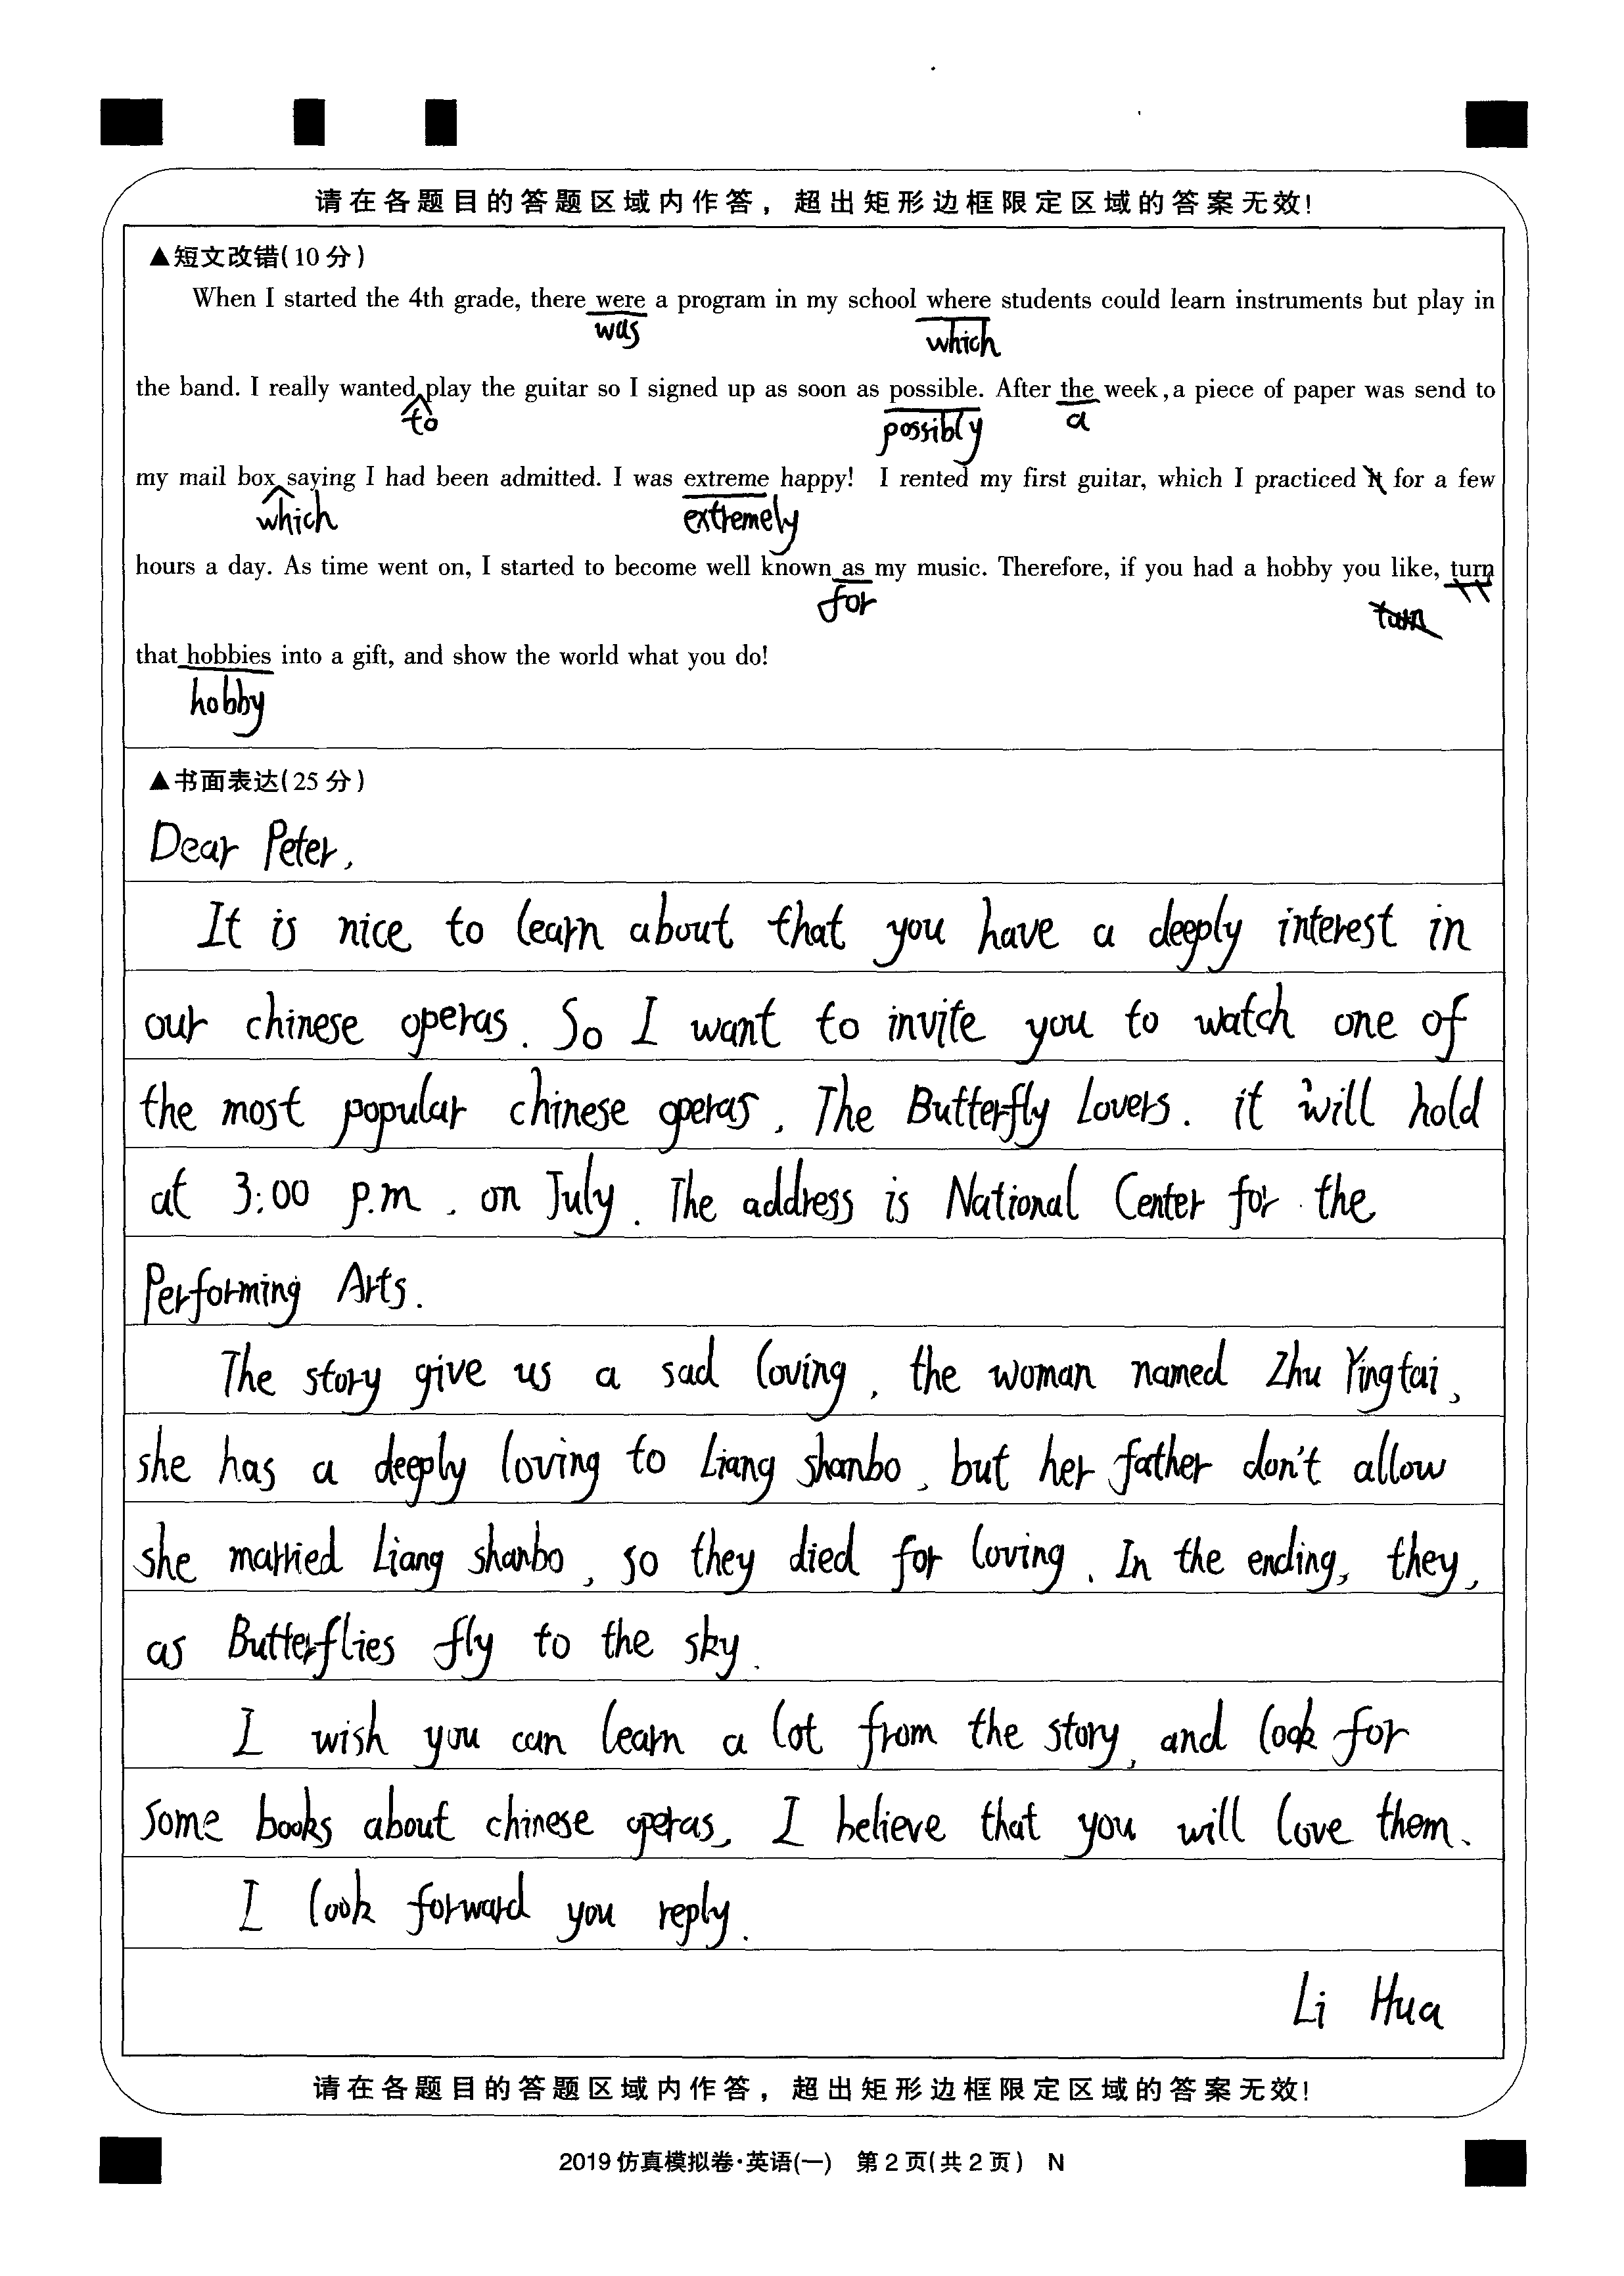 请在各题目的答题区域内作答，超出矩形边框限定区域的答案无效!
▲短文改错(10分)
When I started the 4th grade, there were a program in my school where students could learn instruments but play in
was which
the band. I really wanted play the guitar so I signed up as soon as possible. After the week, a piece of paper was send to
to possibly a
my mail box saying I had been admitted. I was extreme happy! I rented my first guitar, which I practiced it for a few
which extremely
hours a day. As time went on, I started to become well known as my music. Therefore, if you had a hobby you like, turn
for turn
that hobbies into a gift, and show the world what you do!
hobby
▲书面表达(25分)
Dear Peter,
It is nice to learn about that you have a deeply interest in
our chinese operas. So I want to invite you to watch one of
the most popular chinese operas, The Butterfly Lovers. it will hold
at 3:00 p.m. on July. The address is National Center for the
Performing Arts.
The story give us a sad loving, the woman named Zhu Yingtai,
she has a deeply loving to Liang shanbo, but her father don't allow
she married Liang shanbo, so they died for loving. In the ending, they,
as Butterflies fly to the sky.
I wish you can learn a lot from the story, and look for
some books about chinese operas, I believe that you will love them.
I look forward you reply.
Li Hua
请在各题目的答题区域内作答，超出矩形边框限定区域的答案无效!
2019仿真模拟卷·英语(一) 第2页(共2页) N